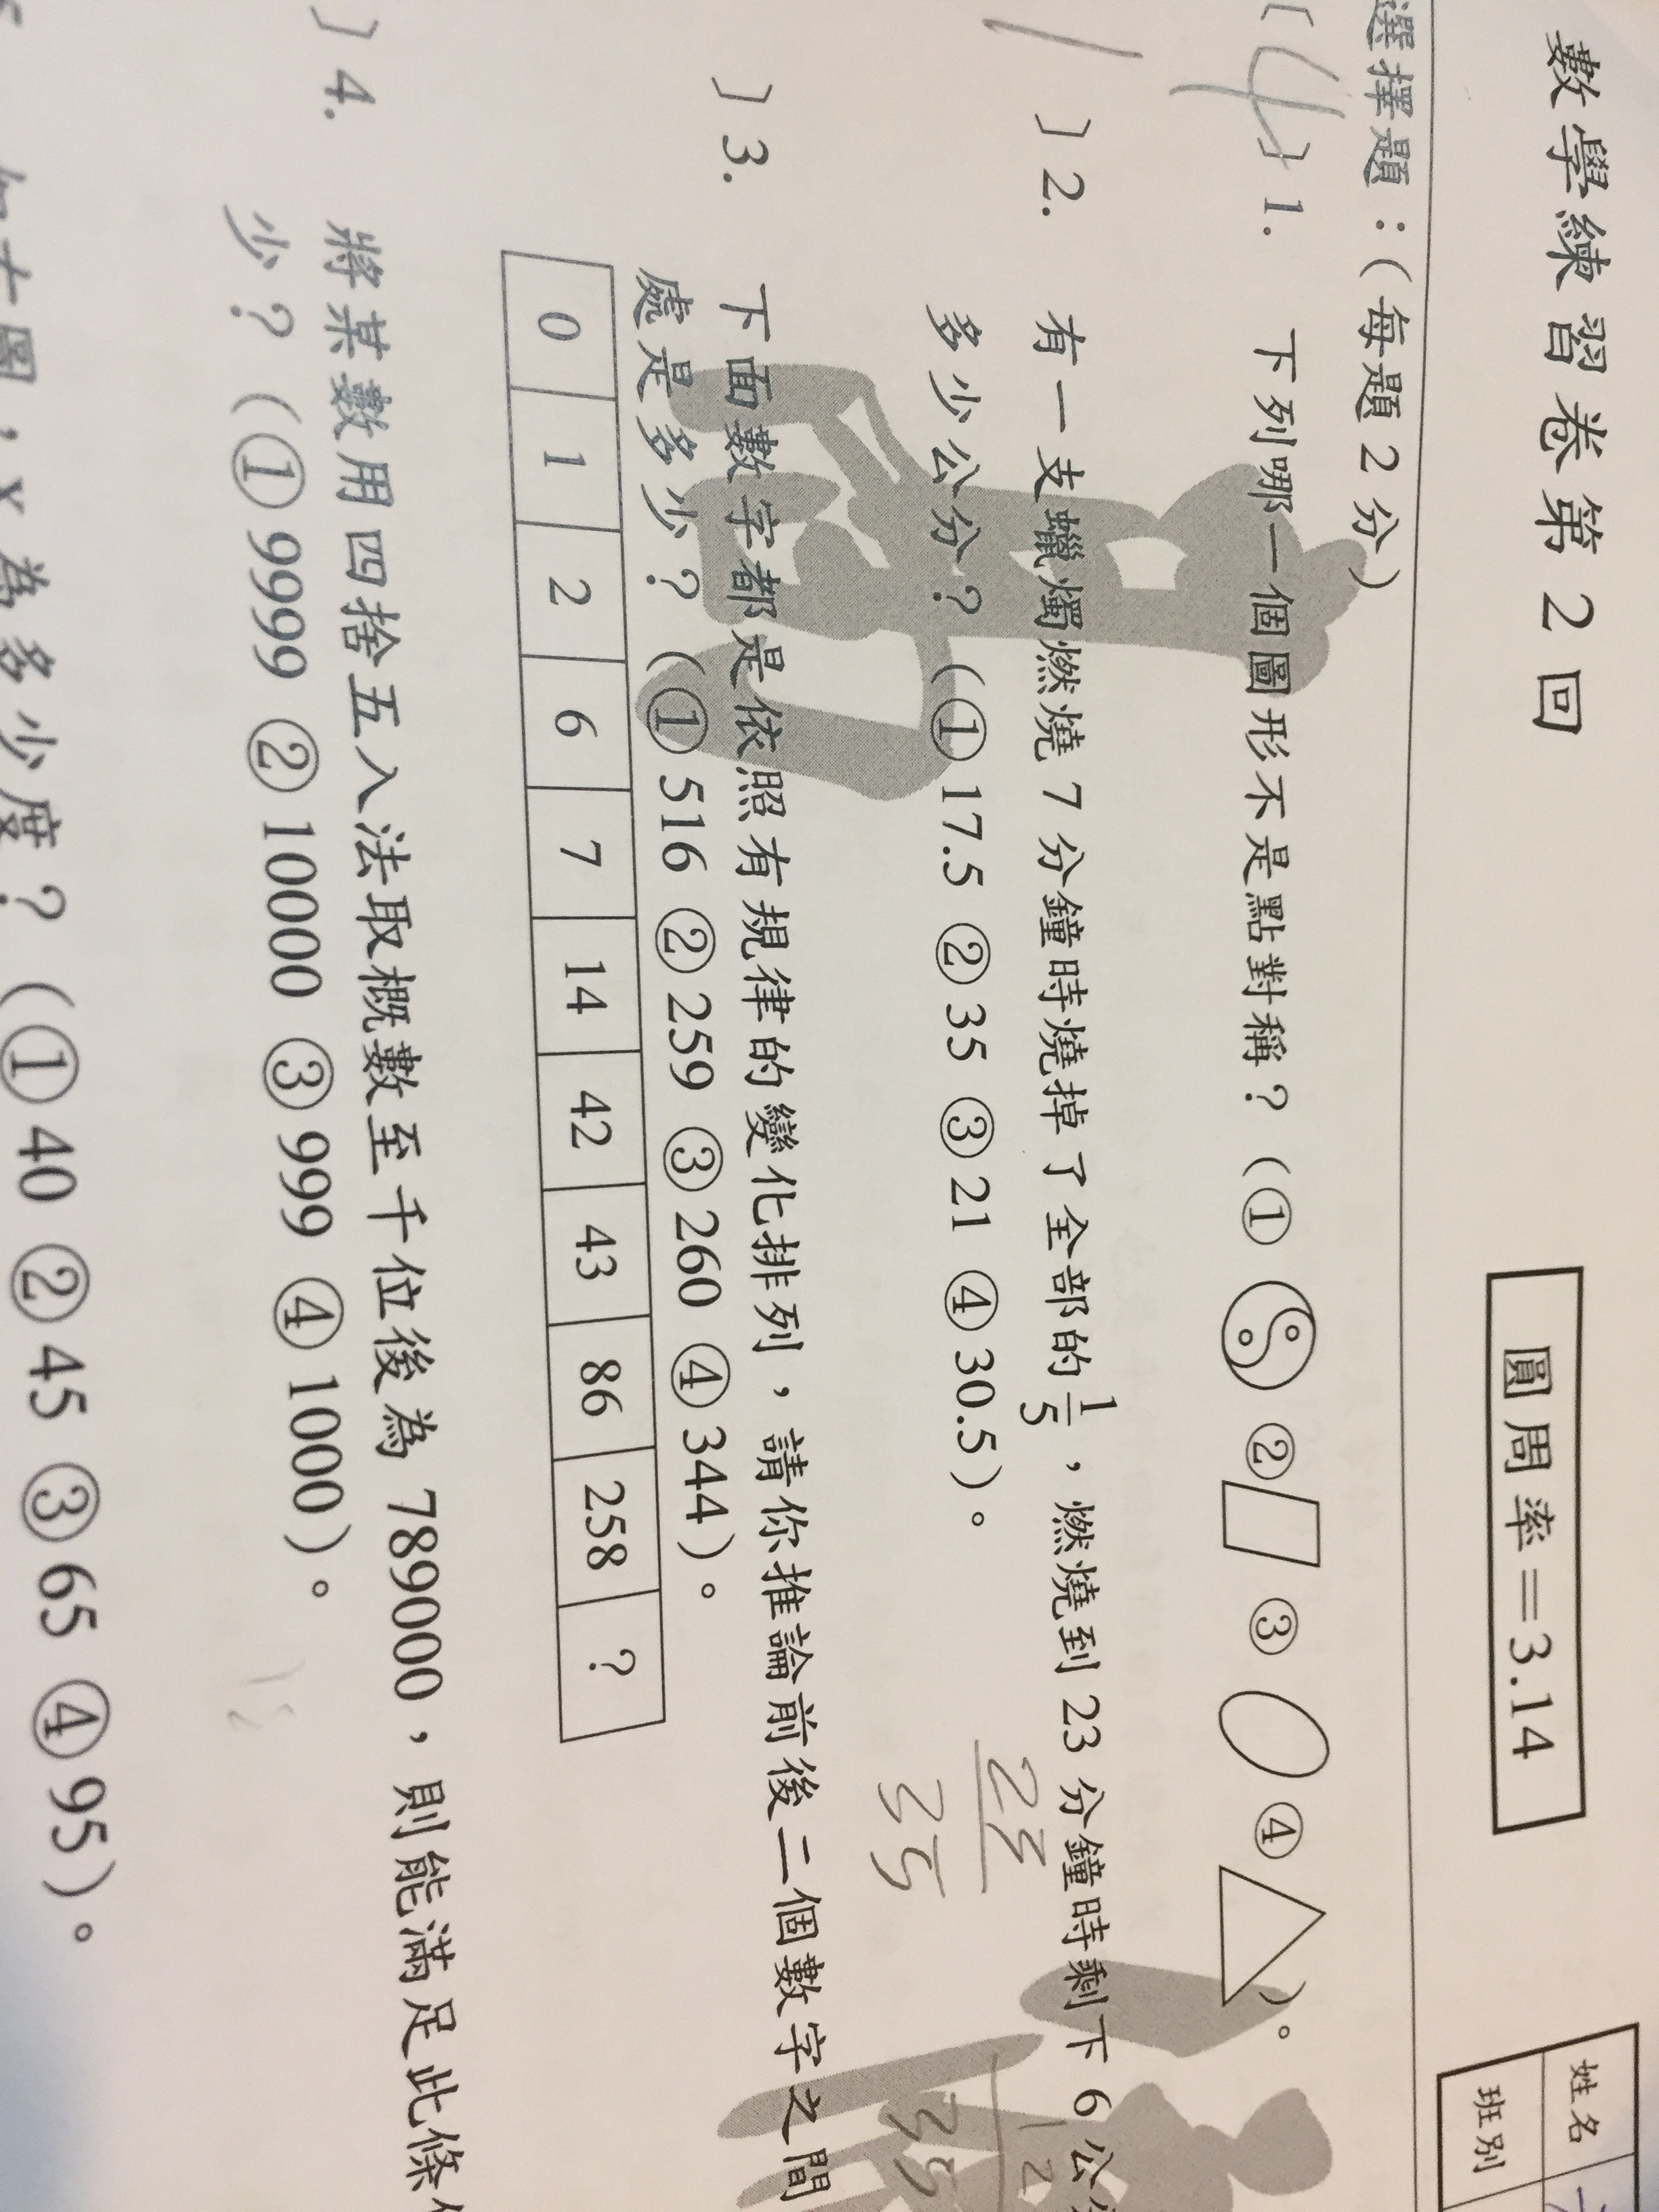 數學練習卷第2回
圓周率=3.14
姓名
班別
選擇題：(每題2分)
〔4〕1. 下列哪一個圖形不是點對稱？(① ② ③ ④ )。
〕2. 有一支蠟燭燃燒7分鐘時燒掉了全部的1/5，燃燒到23分鐘時剩下6公
多少公分？(①17.5 ②35 ③21 ④30.5)。
23
35
12
35
〕3. 下面數字都是依照有規律的變化排列，請你推論前後二個數字之間
處是多少？(①516 ②259 ③260 ④344)。
0 1 2 6 7 14 42 43 86 258 ?
〕4. 將某數用四捨五入法取概數至千位後為789000，則能滿足此條
少？(①9999 ②10000 ③999 ④1000)。
圖，x為多少度？(①40 ②45 ③65 ④95)。